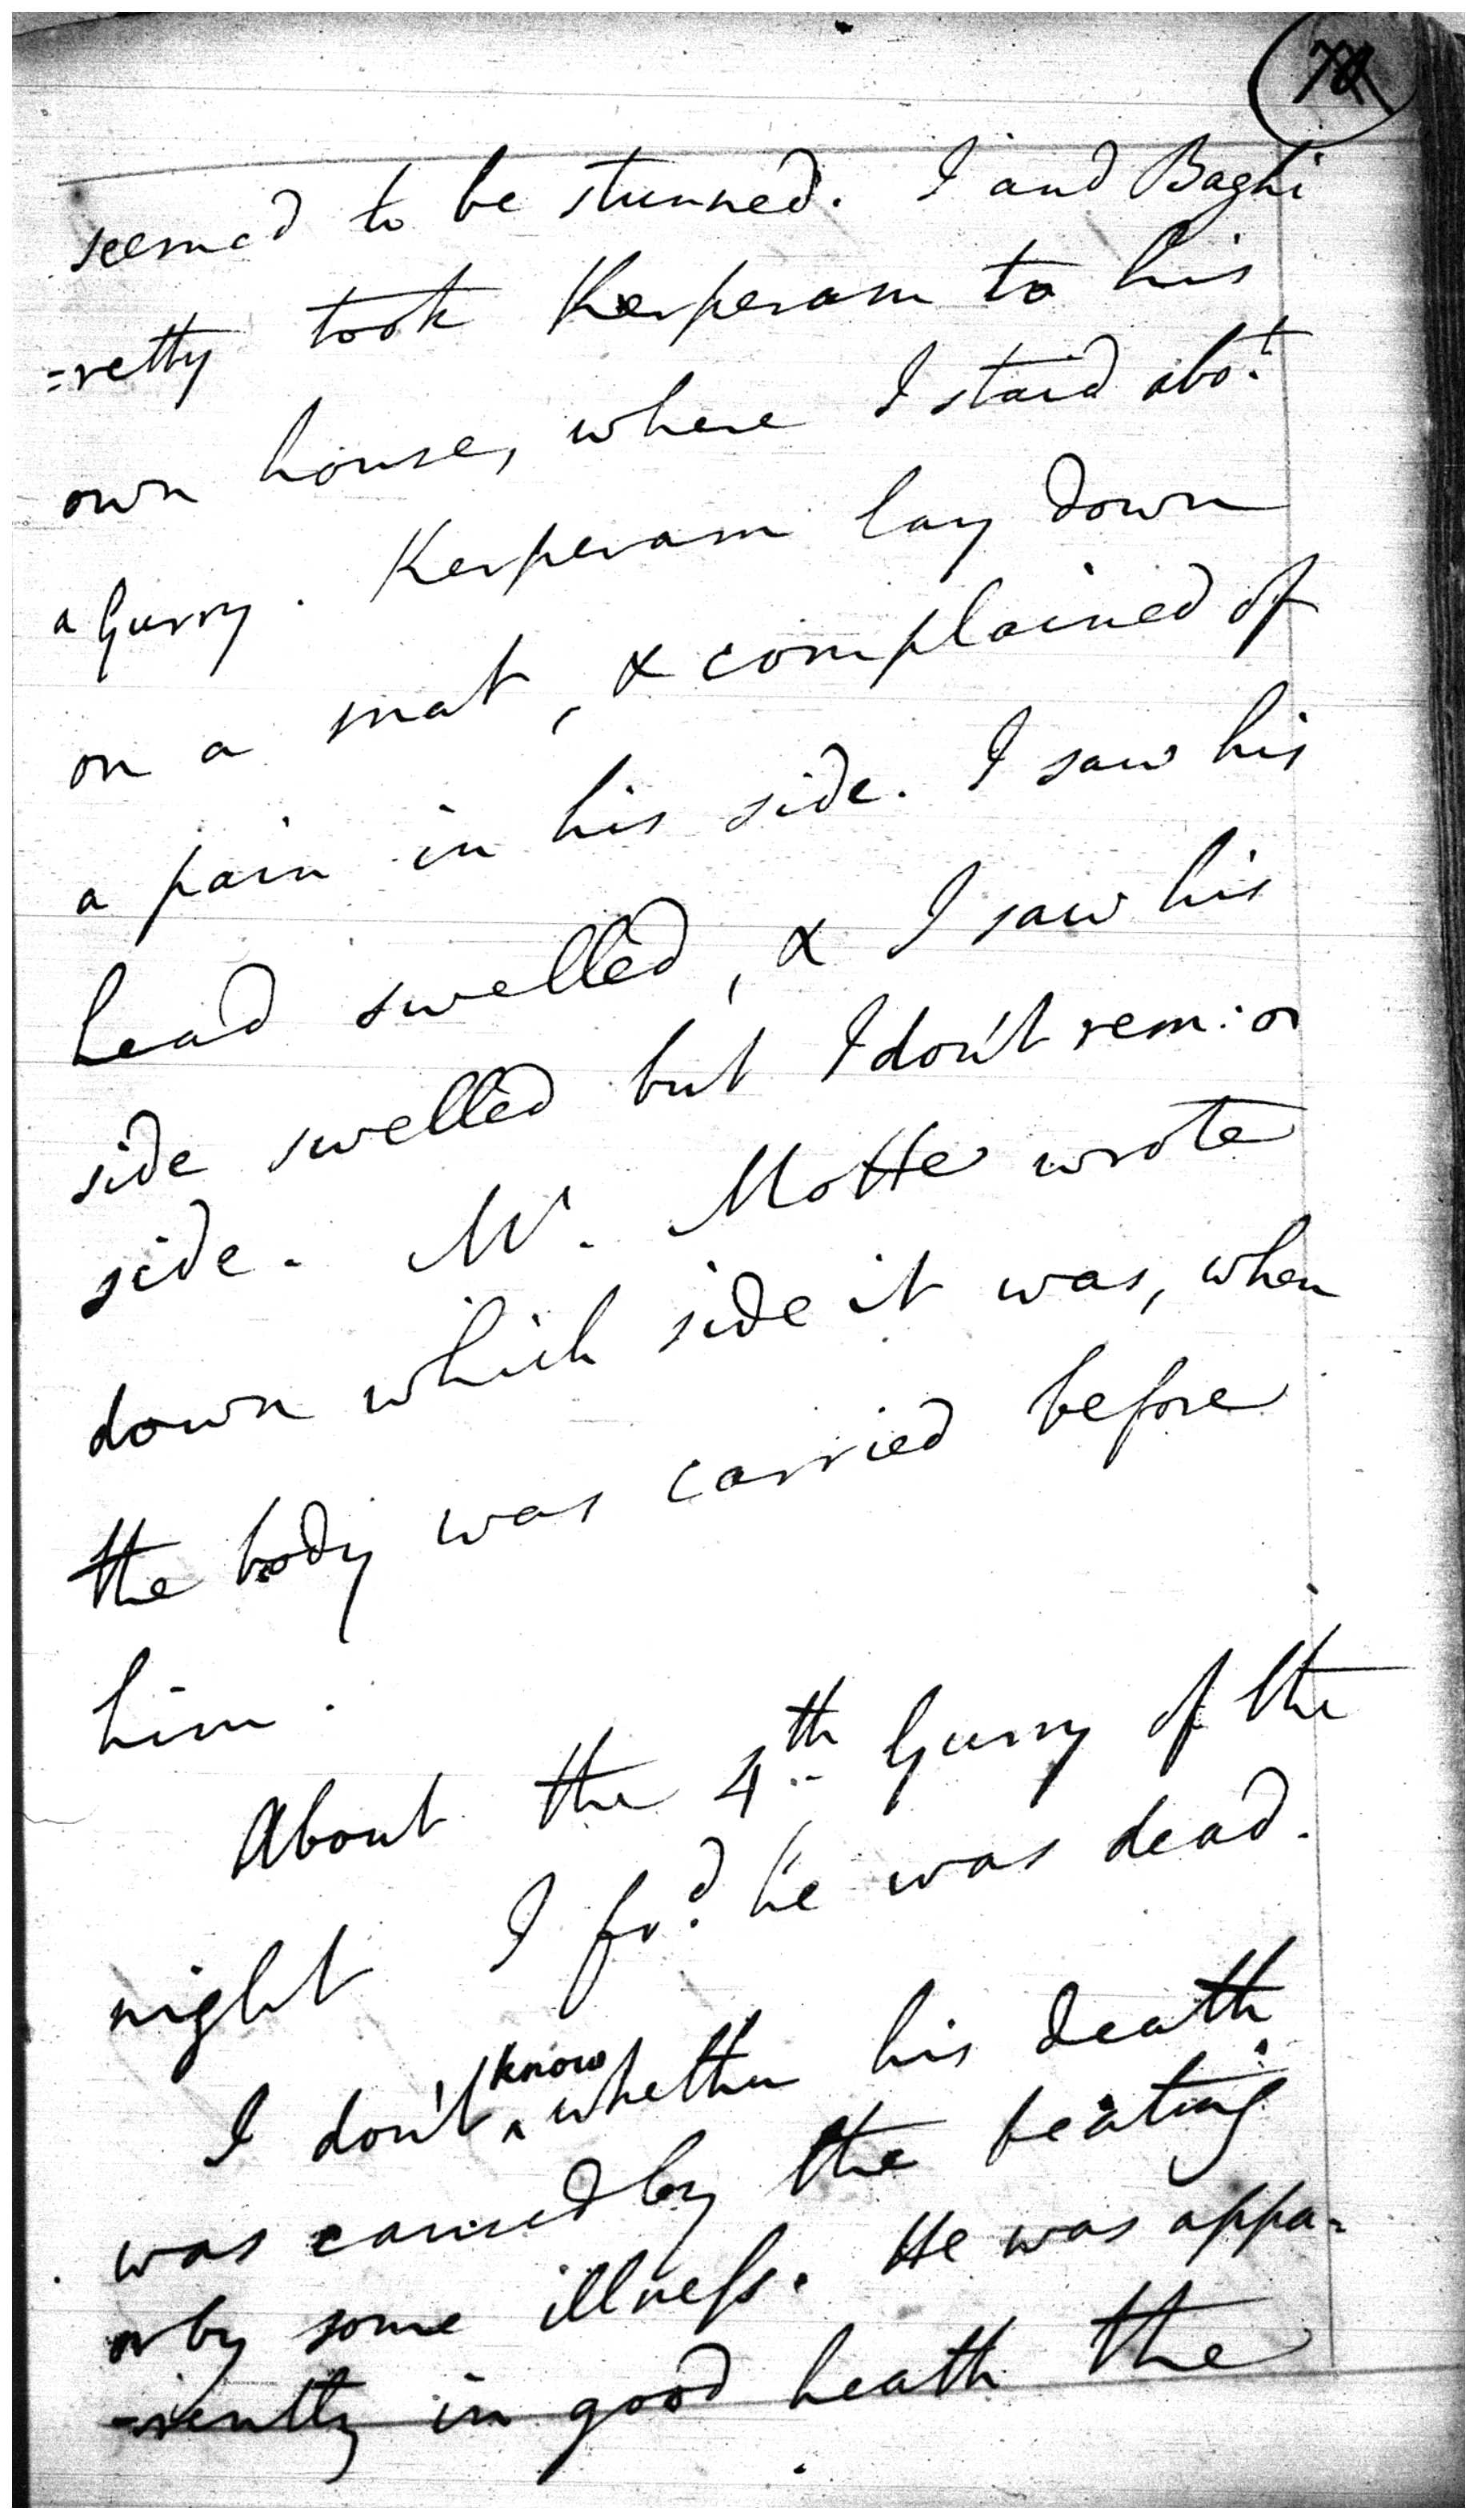 seemed to be stunned. I and Baghi
=retty took Kerperam to his
own house, where I staid abo.t
a Gurry. Kerperam lay down
on a mat, & complained of
a pain in his side. I saw his
head swelled, & I saw his
side swelled but I don't rem: or
side. Mr. Motte wrote
down which side it was, when
the body was carried before
him.
About the 4th Gurry of the
night I fo.d he was dead.
I don't know whether his death
was caused by the beating
or by some illness. He was appa=
=rently in good heath the